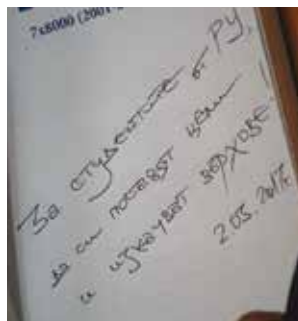 7x8000 (2001
За студентите от РУ,
да си поставят цели
и изкачват върхове!
2.03.2017г.